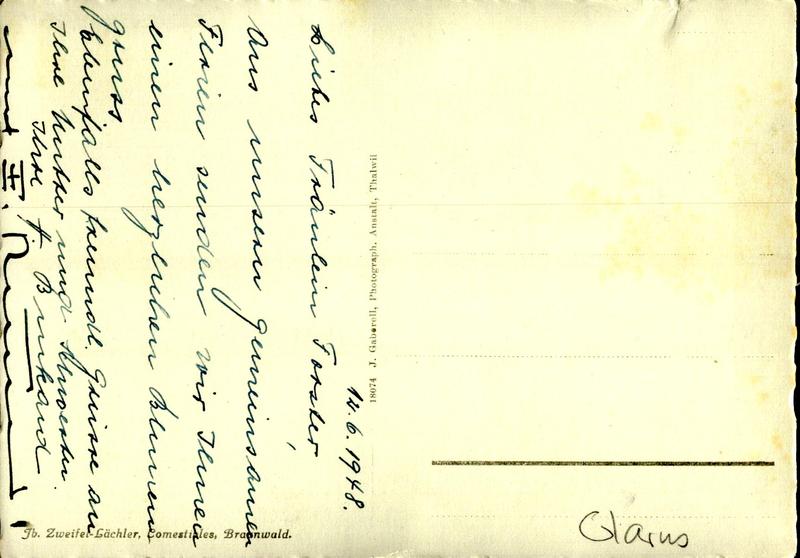 12.6.1948.
Liebes Fräulein Forster
Aus unsern gemeinsamen
Ferien senden wir Ihnen
einen herzlichen Blumen
gruss
Ebenfalls freundl. Grüsse an
Ihre Mutter und Schwester.
Ihre
und
18074 J. Gaberell, Photograph. Anstalt, Thalwil
Jb. Zweifel-Lächler, Comestibles, Braunwald.
Glarus